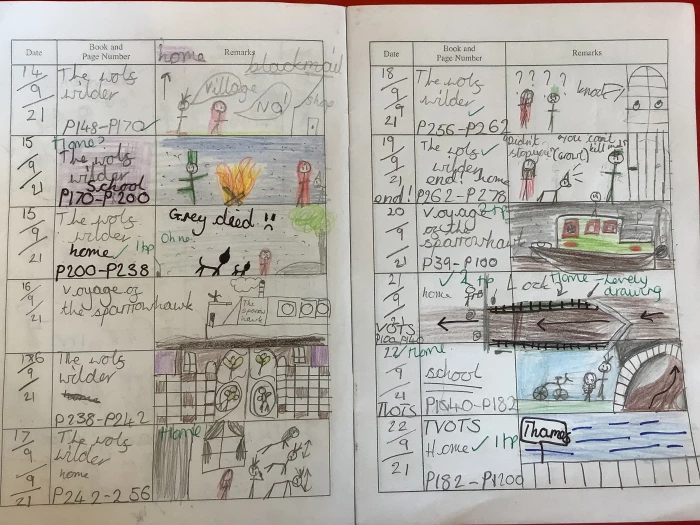 Date
Book and
Page Number
Remarks
home
14
9
21
The wols
wilder
P148-P170
village
NO!
blackmail
shop
15
9
21
Home?
The wols
wilder
School
P170-P200
15
9
21
The wols
wilder
home 1hp
P200-P238
Grey died
Oh no.
16
9
21
voyage of
the sparrowhawk
The
sparow
hawk
The wols
wilder
9
21
P238-P242
17
9
21
The wols
wilder
home
P242-256
Home
Date
Book and
Page Number
Remarks
18
9
21
The wols
wilder
P256-P262
? ? ? ?
knock
19
9
21
end!
The wols
wilder
end! home
P262-P278
you cant
kill me
20
9
21
voyage
of the
sparrowhawk
P39-P100
21
9
21
VOTS
home
Lock
Home - Lovely
drawing
22
9
21
TVOTS
Home
school
P1540-P182
22
9
21
TVOTS
Home 1hp
P182-P1200
Thames